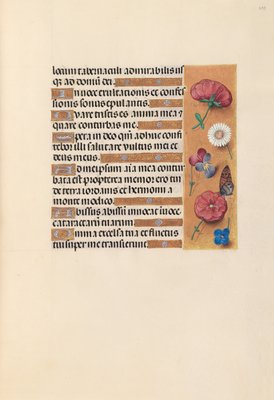 locum tabernaculi admirabilis us
q̄ ad domū dei.
In uoce exultationis et confes
sionis sonus epulantis.
Quare tristis es anima mea?
quare conturbas me.
Spera in deo qm̄ adhuc confi
tebor illi salutare vultus mei et
deus meus.
Ad meipsum aīa mea contur
bata est propterea memor ero tui
de terra iordanis et hermonii a
monte modico.
Abissus abissū inuocat in uoce
cataractarū tuarum.
Omnia excelsa tua et fluctus
tui super me transierunt.